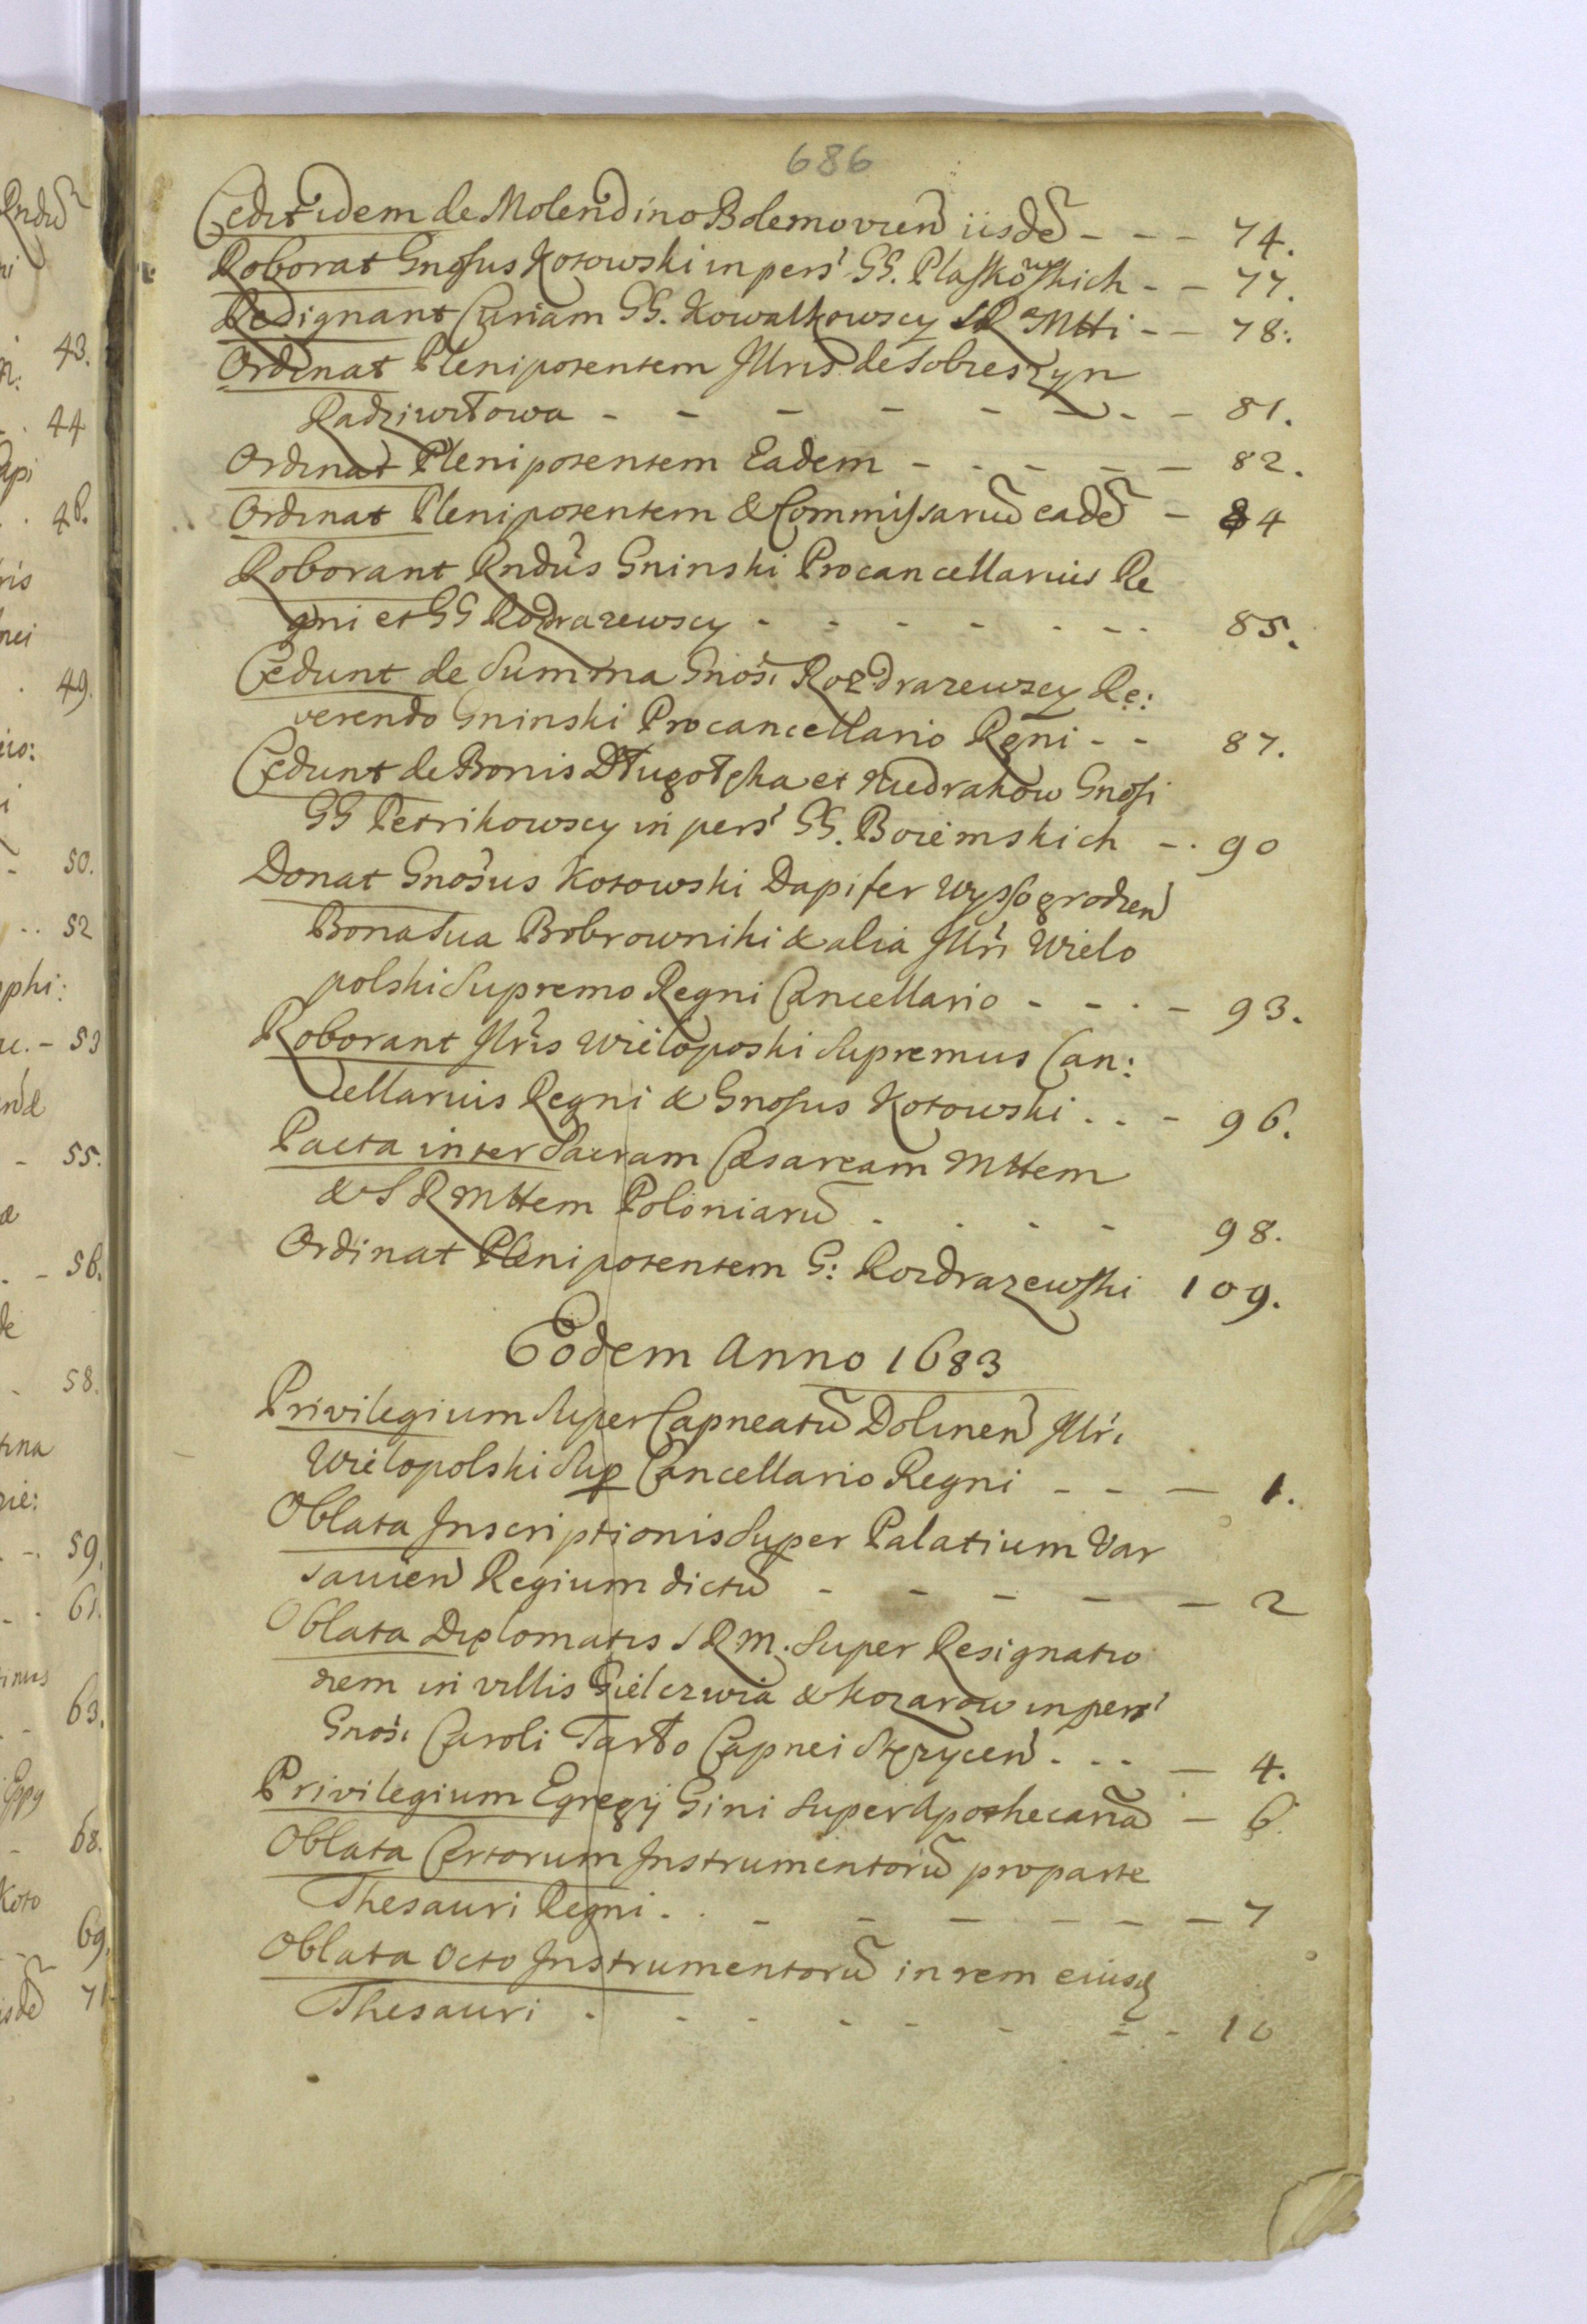 686
Cedit idem de Molendino Bolemovien iisdē - - - 74.
Roborat Gnosus Kotowski in pers' GG. Plaskowskich - - 77.
Resignant Curiam GG. Kowalkowscy S R Mtti - - 78.
Ordinat Plenipotentem Illris de Sobieszyn
Radziwiłowa - - - - - - - - 81.
Ordinat Plenipotentem Eadem - - - - - 82.
Ordinat Plenipotentem & Commissariū eadē - 84
Roborant Rndus Gninski Procancellarius Re
gni et GG Rozdrazewscy - - - - - - - - 85.
Cedunt de Summa Gnosi Rozdrazewscy Re:
verendo Gninski Procancellario Regni - - 87.
Cedunt de Bonis Długołęka et Niedrakow Gnosi
GG Petrikowscy in pers' GG. Boremskich - . 90
Donat Gnosus Kotowski Dapifer Wyssogrodzen
Bona Sua Bobrowniki & alia Illri Wielo
polski Supremo Regni Cancellario - - . - 93.
Roborant Illris Wieloposki Supremus Can:
cellarius Regni & Gnosus Kotowski . . - 96.
Pacta inter Sacram Caesaream Mttem
& S R Mttem Poloniarū - . - - 98.
Ordinat Plenipotentem G: Rozdrazewski 109.
Eodem Anno 1683
Privilegium Super Capneatū Dolinen Illri
Wielopolski Sup Cancellario Regni - - - 1.
Oblata Inscriptionis Super Palatium Var
savien Regium dictū - - - - - 2
Oblata Diplomatis S R M. Super Resignatio
nem in villis Gielczwia & Kozarow in pers'
Gnosi Caroli Tarło Capnei Stęzycen . . . - 4.
Privilegium Egregij Gini Super Apothecariā - 6.
Oblata Certorum Instrumentorū pro parte
Thesauri Regni . . - - - - - - 7
Oblata Octo Instrumentorū in rem eiusd
Thesauri - - - - - - - - - 10
43.
44
48.
49.
50.
52
phi:
53
55.
56.
58.
59.
61.
63.
68.
Koto
69.
71